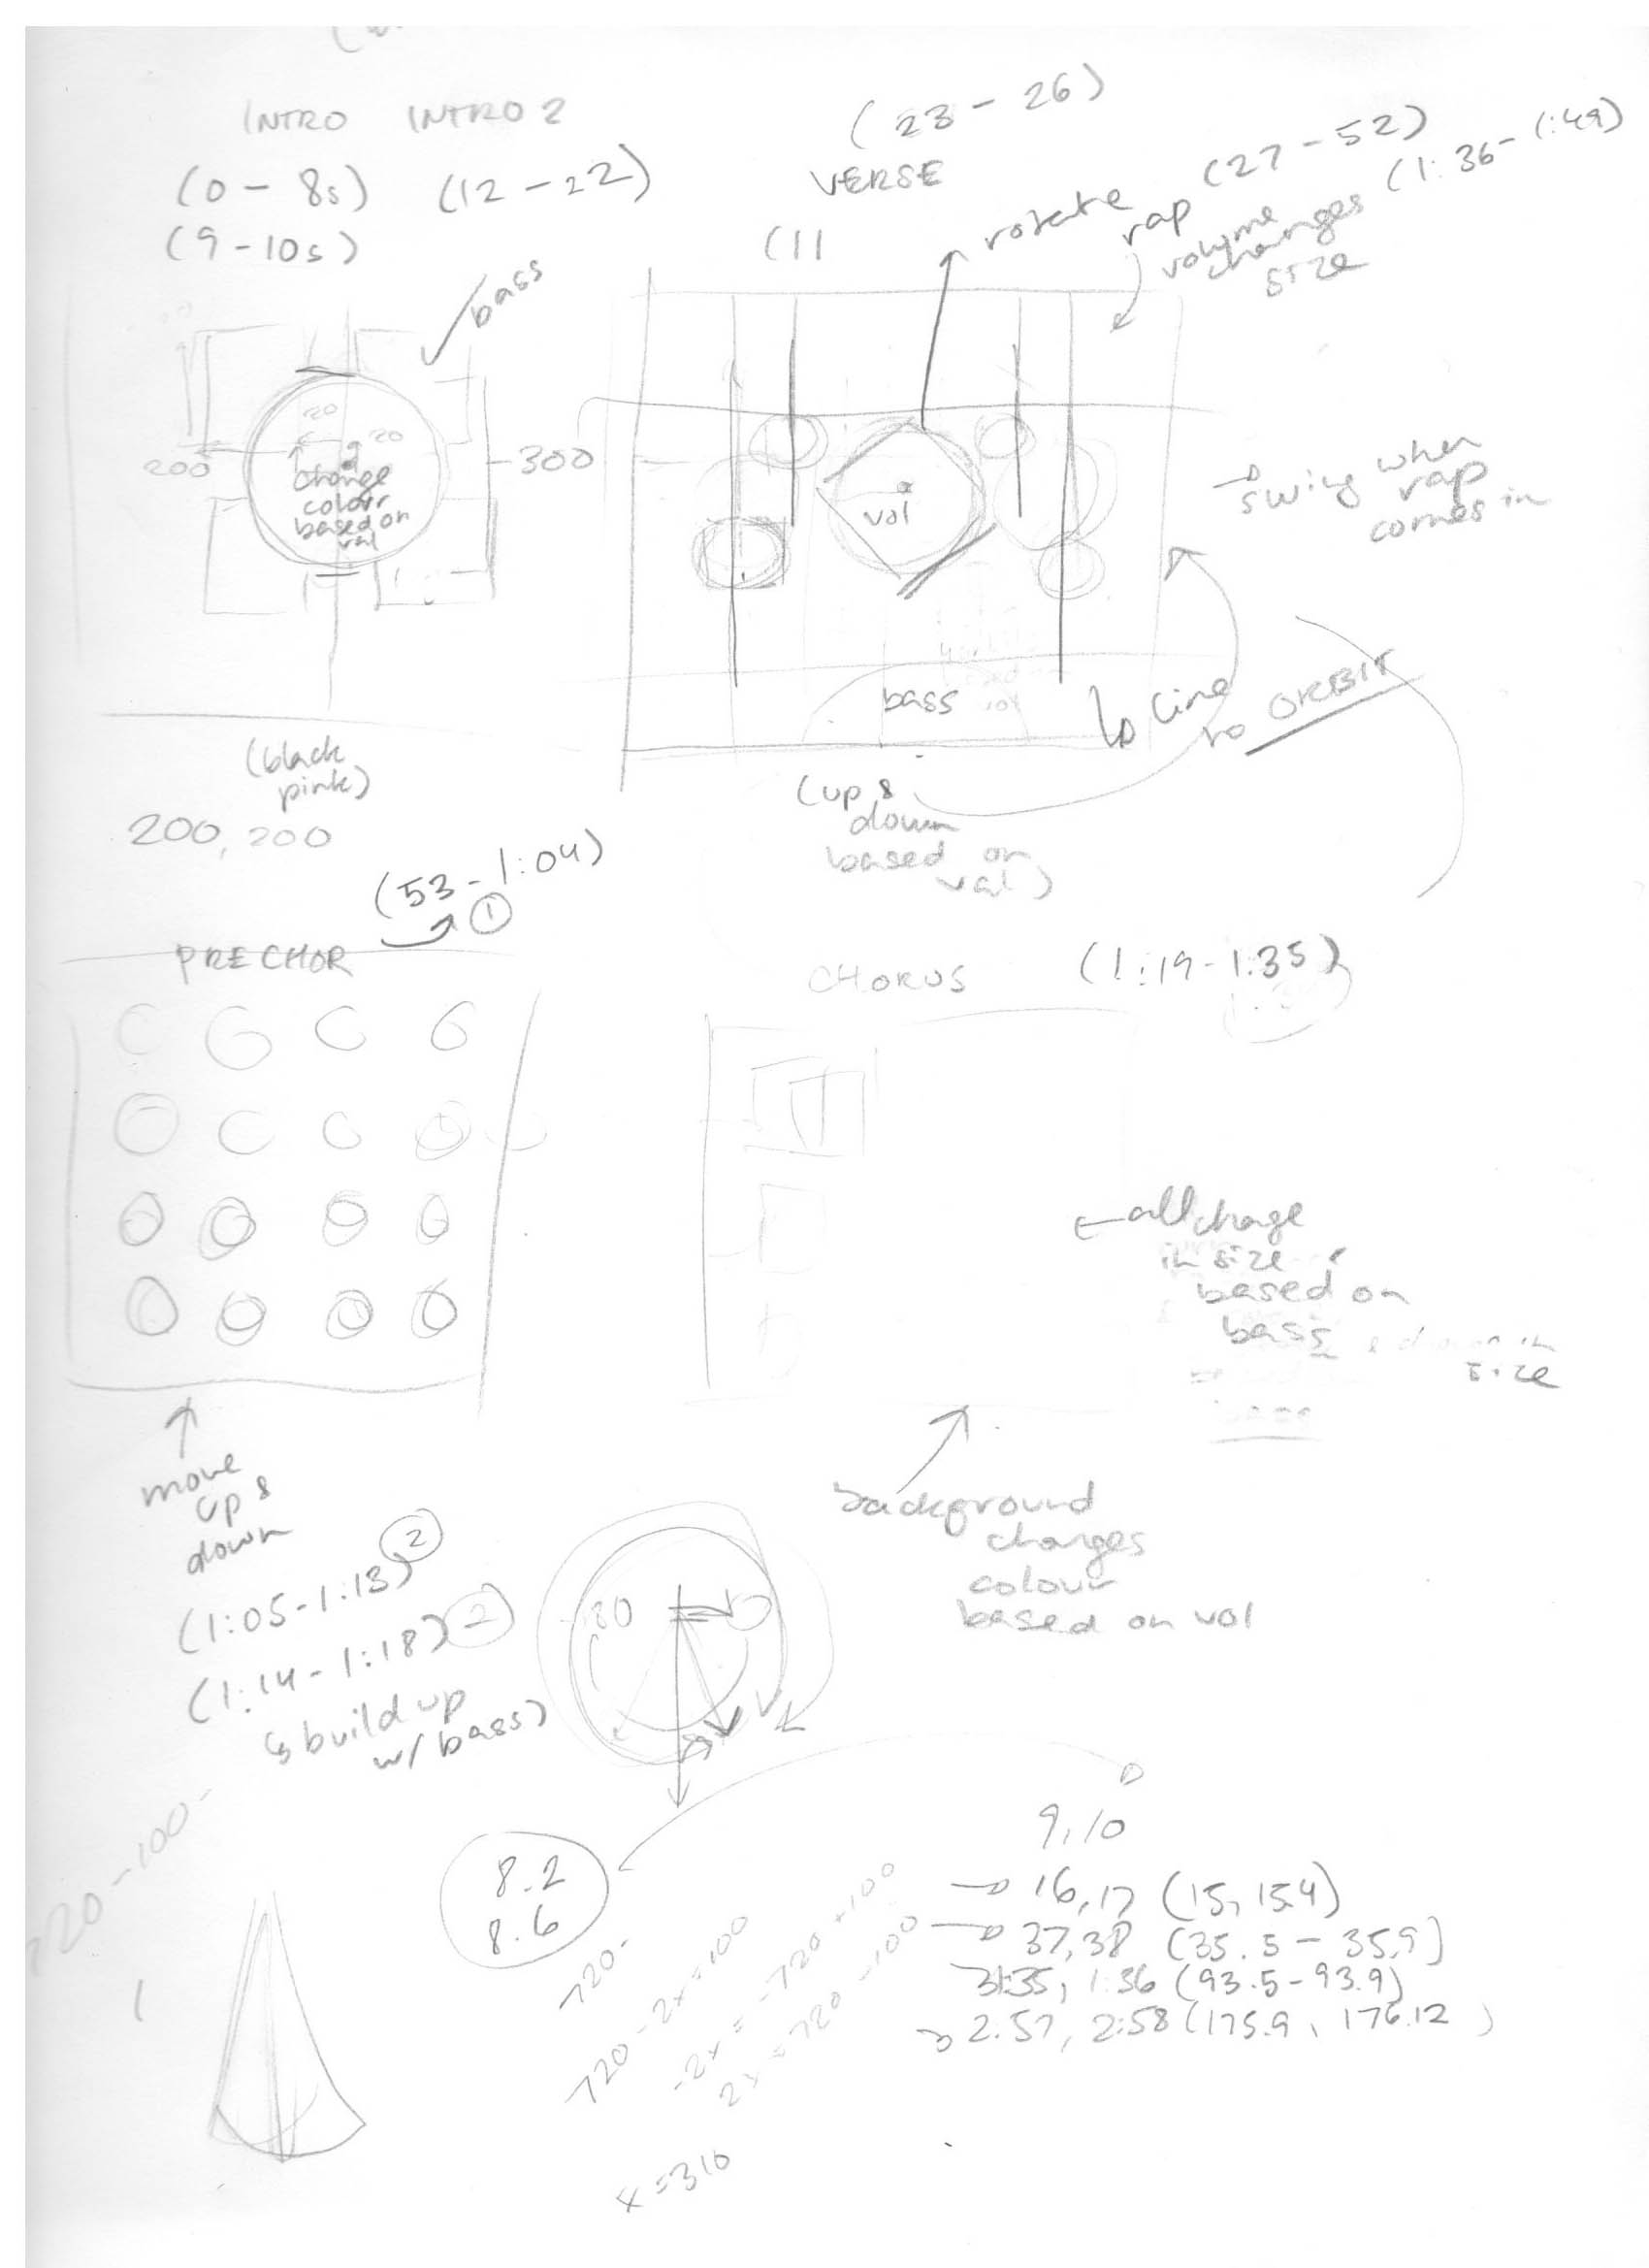 INTRO INTRO 2
(0 - 8s) (12 - 22)
(9 - 10s)
bass
200
20
20
300
change
colour
based on
val
(black
pink)
200, 200
(23 - 26)
VERSE
(11
rotate
rap (27 - 52)
volume
changes (1:36 - 1:49)
size
vol
bass
swing when
rap
comes in
line
to ORBIT
(up &
down
based on
val)
(53 - 1:04)
1
PRECHOR
move
up &
down
(1:05 - 1:13) 2
(1:14 - 1:18) 2
build up
w/ bass)
CHORUS (1:19 - 1:35)
all change
in size
based on
bass
size
background
changes
colour
based on vol
180
8.2
8.6
9, 10
16, 17 (15, 15.4)
37, 38 (35.5 - 35.9)
1:35, 1:36 (93.5 - 93.9)
2.57, 2:58 (175.9, 176.12)
720 - 100 -
720 -
720 - 2x = 100
-2x = -720 + 100
2x = 720 - 100
x = 310